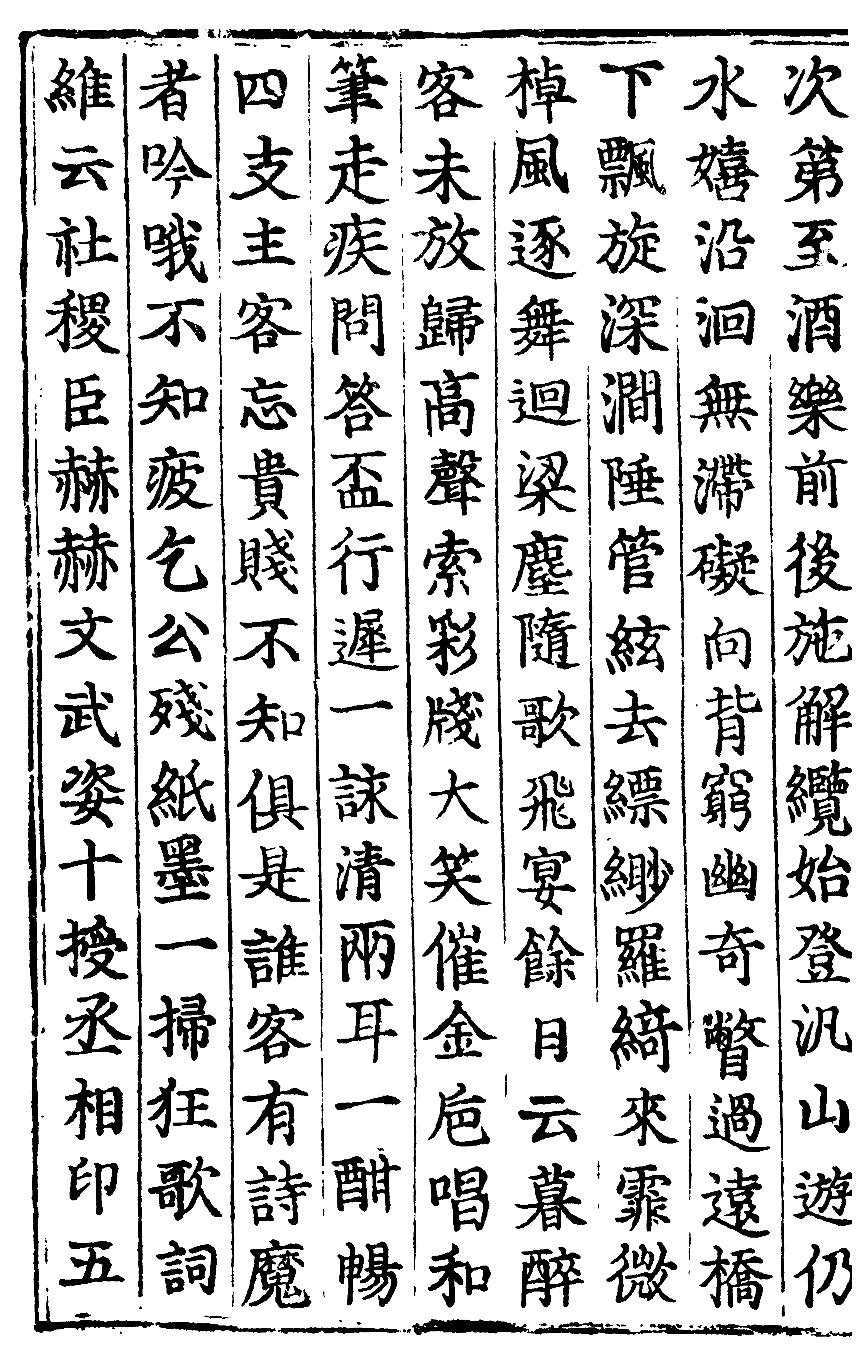 次第至酒樂前後施解纜始登汎山遊仍
水嬉沿洄無滯礙向背窮幽奇瞥過遠橋
下飄旋深澗陲管絃去縹緲羅綺來霏微
棹風逐舞迴梁塵隨歌飛宴餘日云暮醉
客未放歸高聲索彩牋大笑催金卮唱和
筆走疾問答盃行遲一詠清兩耳一酣暢
四支主客忘貴賤不知俱是誰客有詩魔
者吟哦不知疲乞公殘紙墨一掃狂歌詞
維云社稷臣赫赫文武姿十授丞相印五